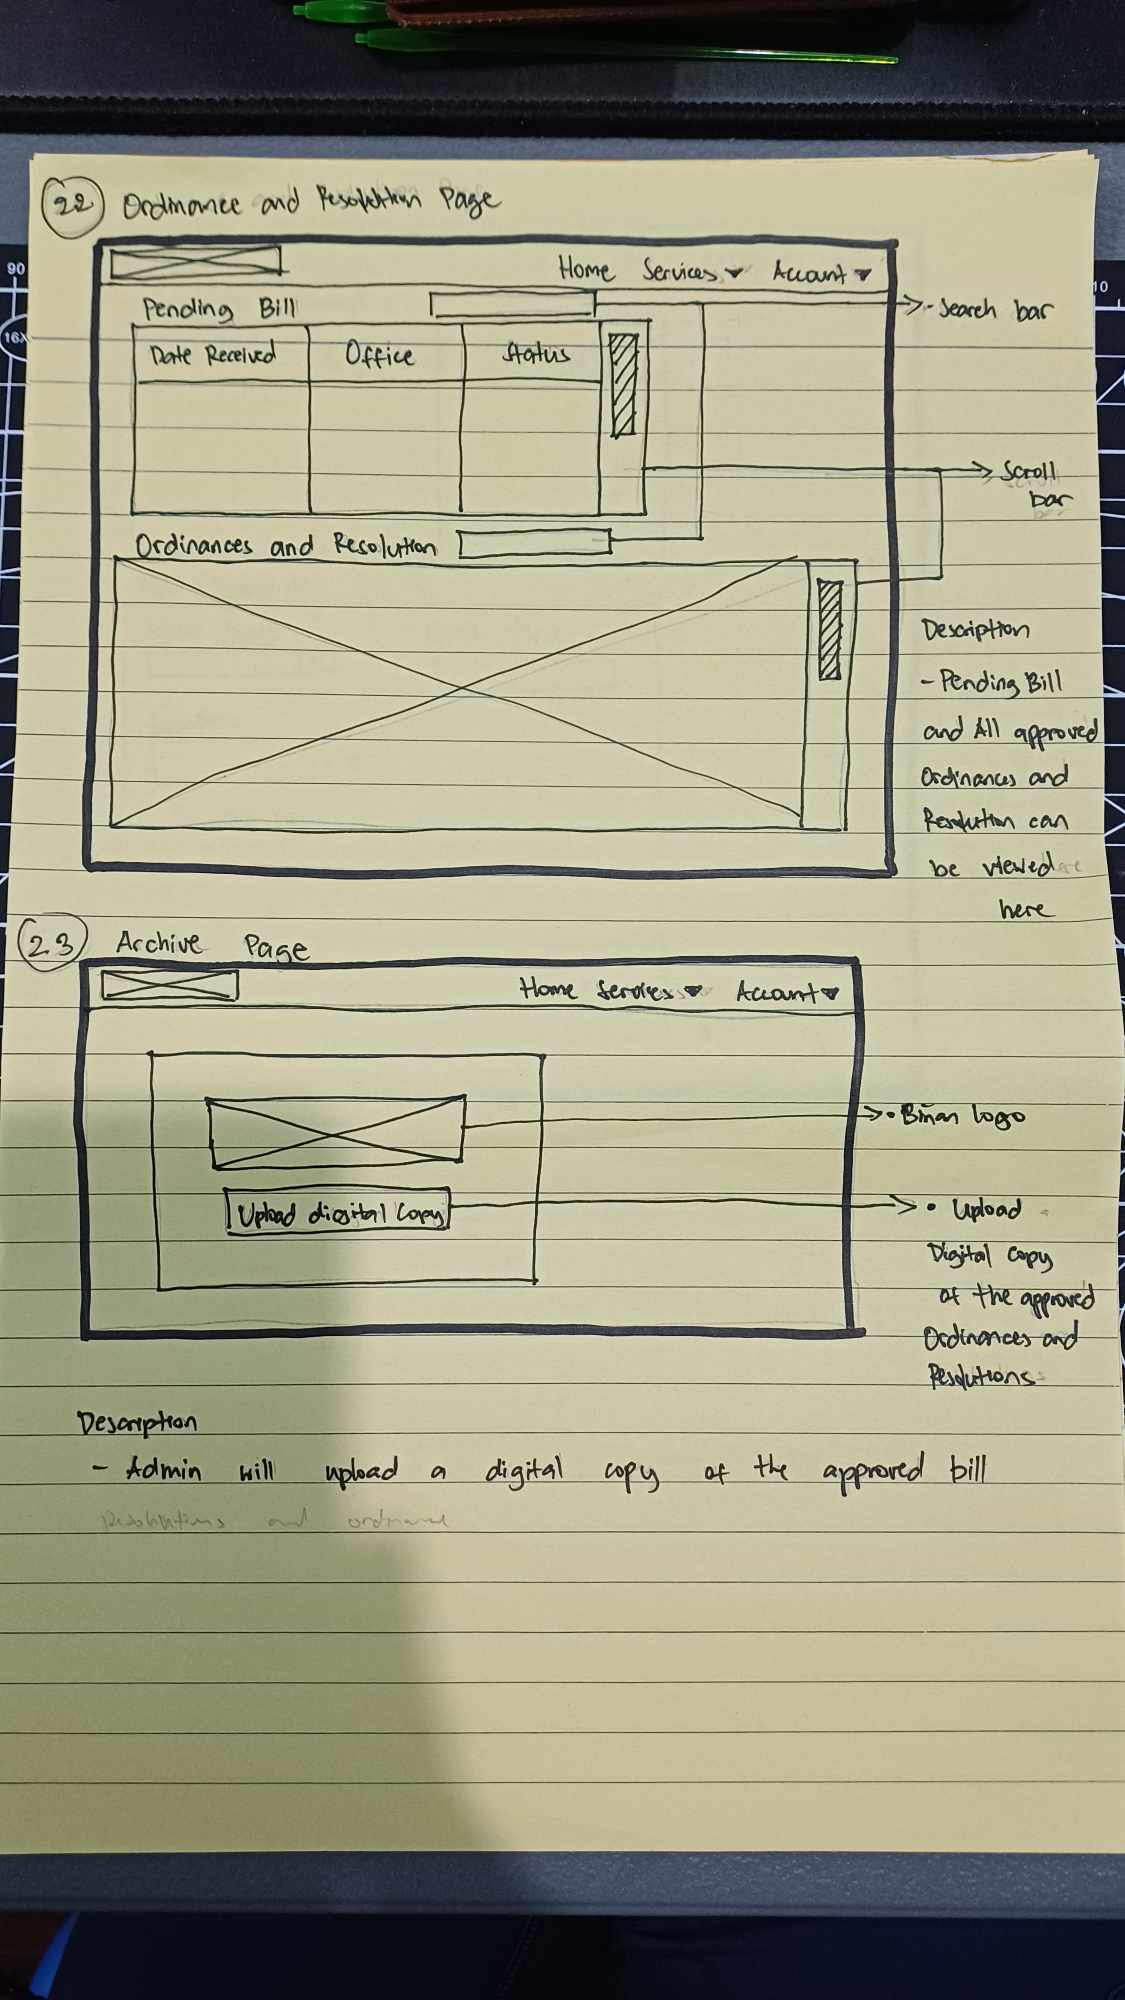 22 Ordinance and Resolution Page
Home Services Account
Pending Bill
- Search bar
Date Received Office Status
Scroll
bar
Ordinances and Resolution
Description
- Pending Bill
and All approved
Ordinances and
Resolution can
be viewed
here
23 Archive Page
Home Services Account
• Biñan logo
Upload digital Copy
• Upload
Digital copy
of the approved
Ordinances and
Resolutions
Description
- Admin will upload a digital copy of the approved bill
Resolutions and ordinance
90
10
16X